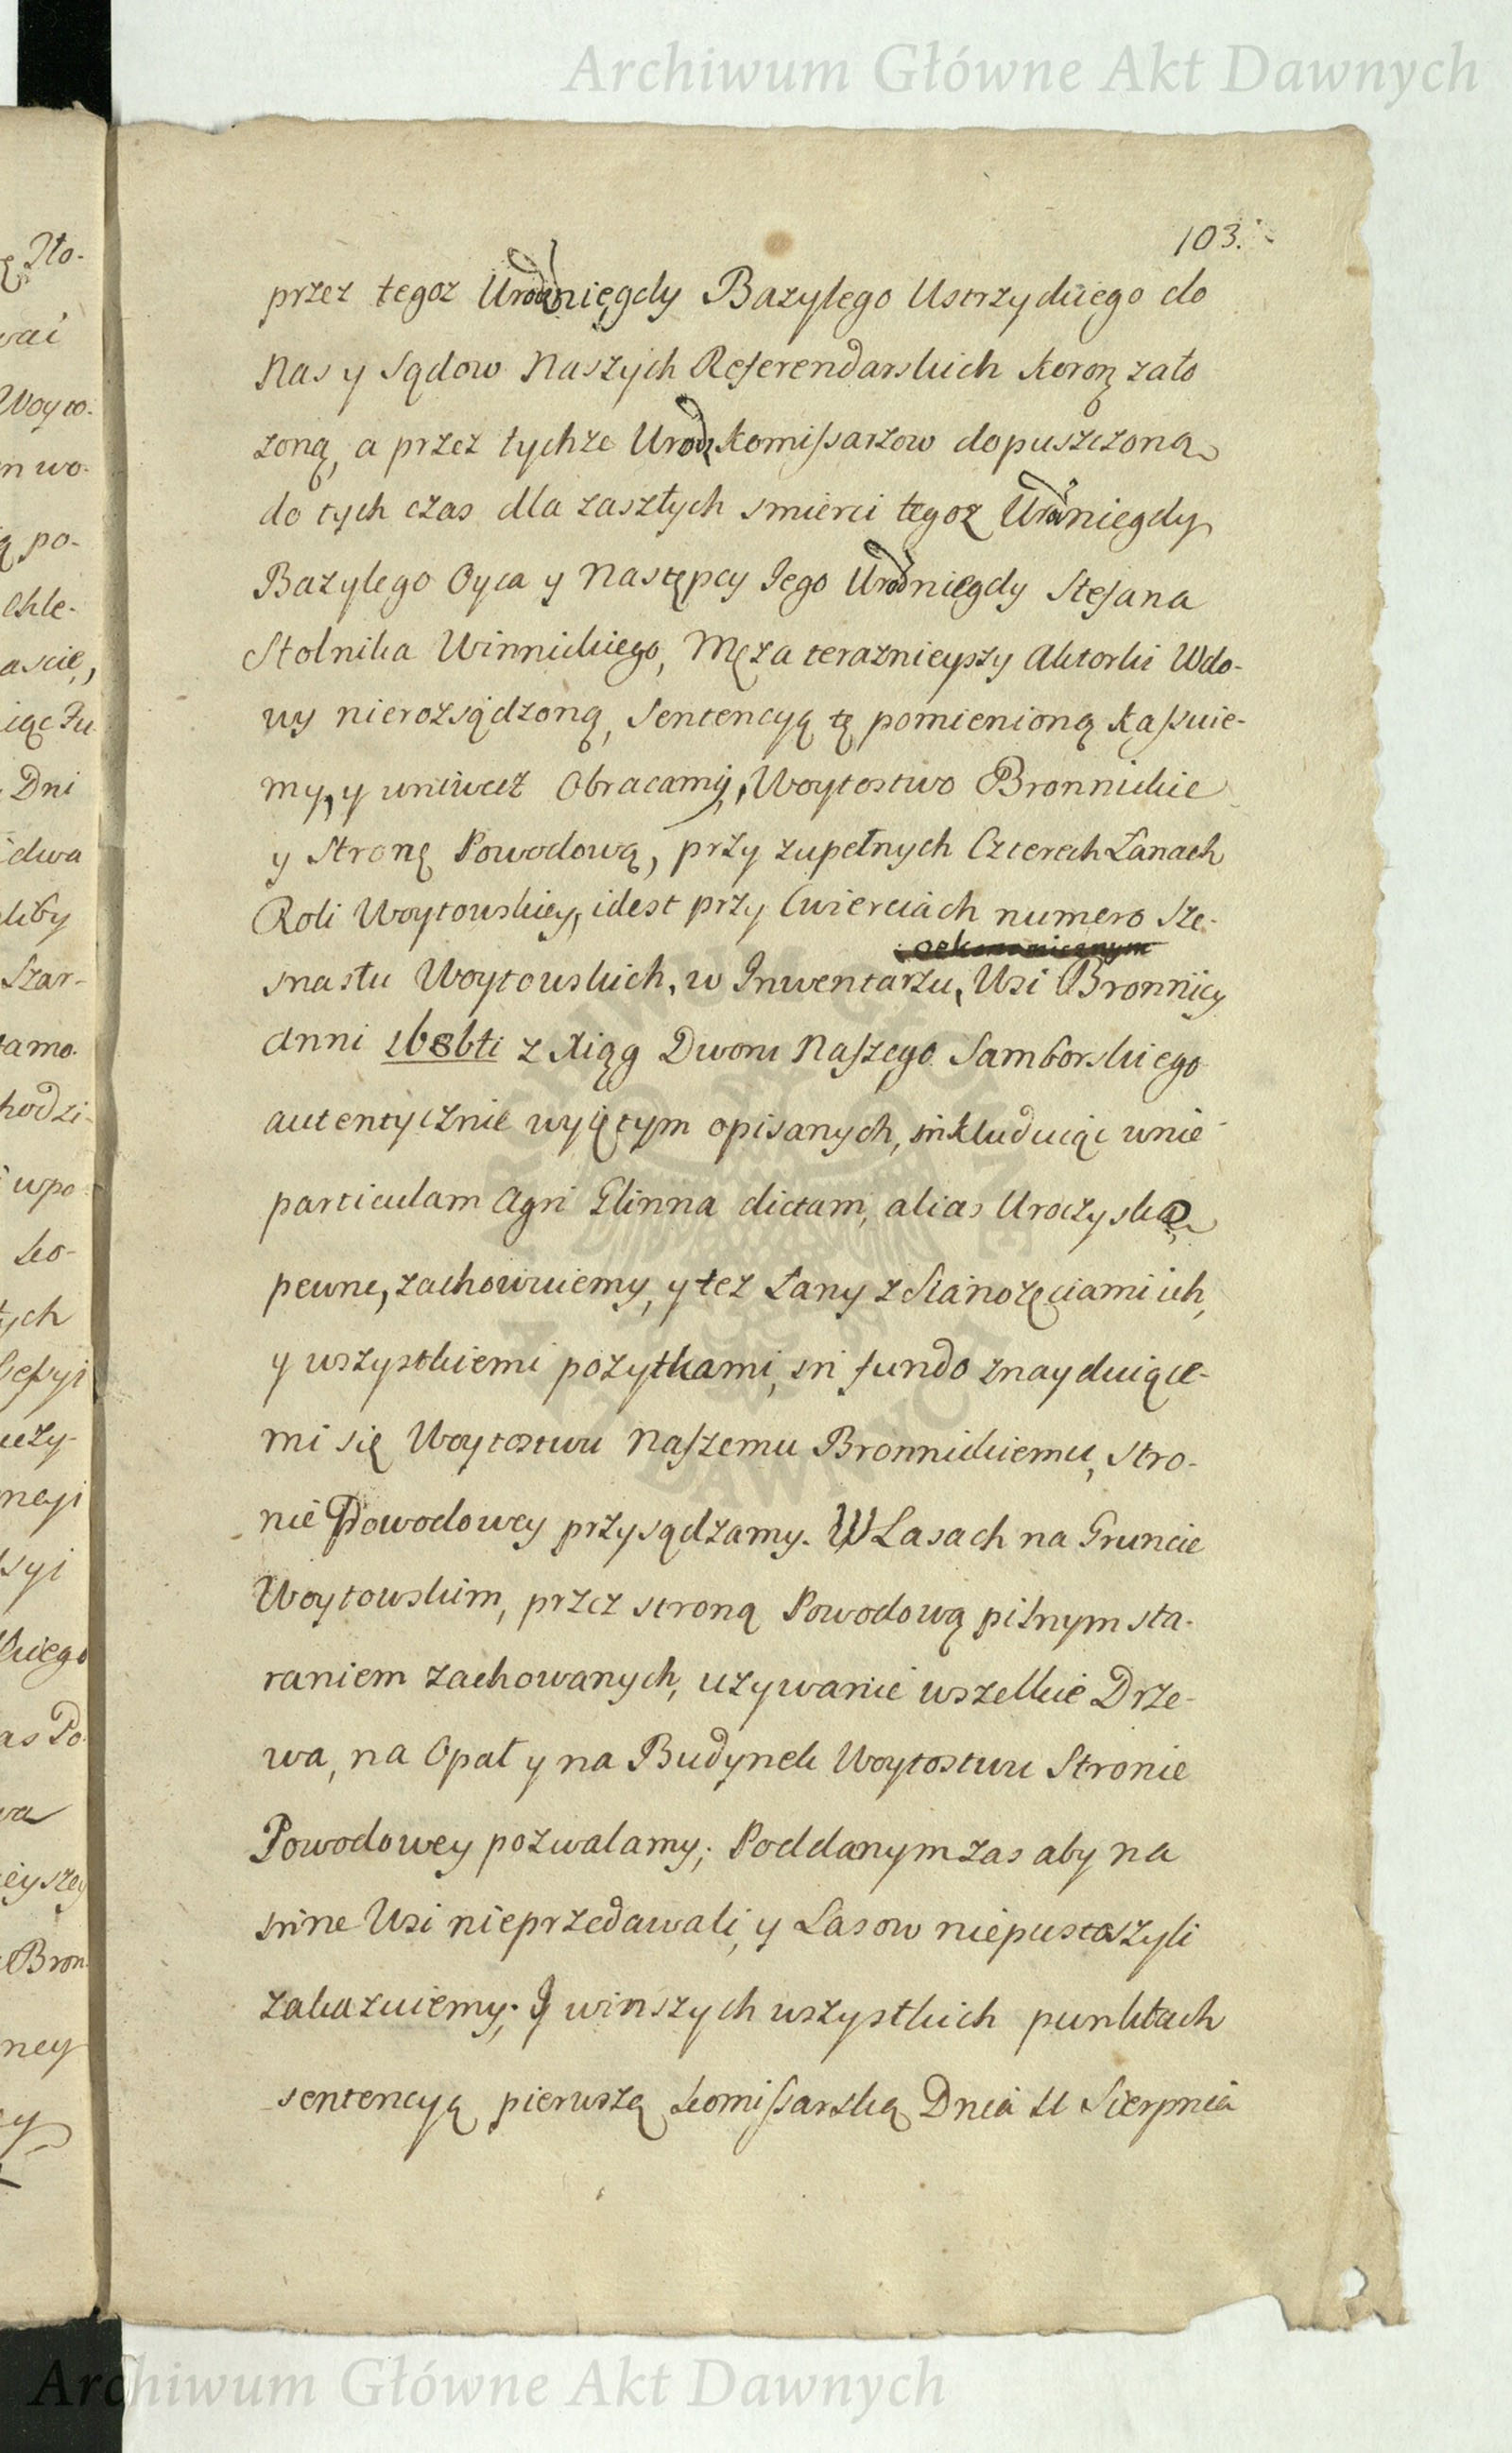 Archiwum Główne Akt Dawnych
103.
przez tegoz Urodz niegdy Bazylego Ustrzyckiego do
Nas y Sądow Naszych Referendarskich Koron zało
zoną, a przez tychze Urodz Komissarzow dopuszczoną
do tych czas dla zaszłych smierci tegoz Urod niegdy
Bazylego Oyca y Następcy Iego Urod niegdy Stefana
Stolnika Winnickiego, Męza teraznieyszy Aktorki Wdo-
wy nierozsądzoną, Sentencyą tę pomienioną Kassuie-
my, y uniwecz Obracamy, Woytostwo Bronnickie
y Stronę Powodową, przy zupełnych Czterech Łanach
Roli Woytowskiey, idest przy Cwierciach numero Sze-
snastu Woytowskich, w Inwentarzu, Wsi Bronnicy
Anni 1686ti z Xiąg Dworu Naszego Samborskiego
autentycznie wyiętym opisanych, inkluduiąc w nie
particulam Agri Glinna dictam, alias Uroczyska
pewne, zachowuiemy, y tez Łany z Sianozęciami ich,
y wszystkiemi pozytkami, in fundo znayduiące-
mi się Woytostwu Naszemu Bronnickiemu, Stro-
nie Powodowey przysądzamy. W Lasach na Gruncie
Woytowskim, przez stroną Powodową pilnym sta-
raniem zachowanych, uzywanie wszelkie Drze-
wa, na Opał y na Budynek Woytostwu Stronie
Powodowey pozwalamy; Poddanym zas aby na
inne Wsi nieprzedawali, y Lasow niepustoszyli
zakazuiemy; Y w inszych wszystkich punktach
sentencyą pierwszą komissarską Dnia 11 Sierpnia
Archiwum Główne Akt Dawnych